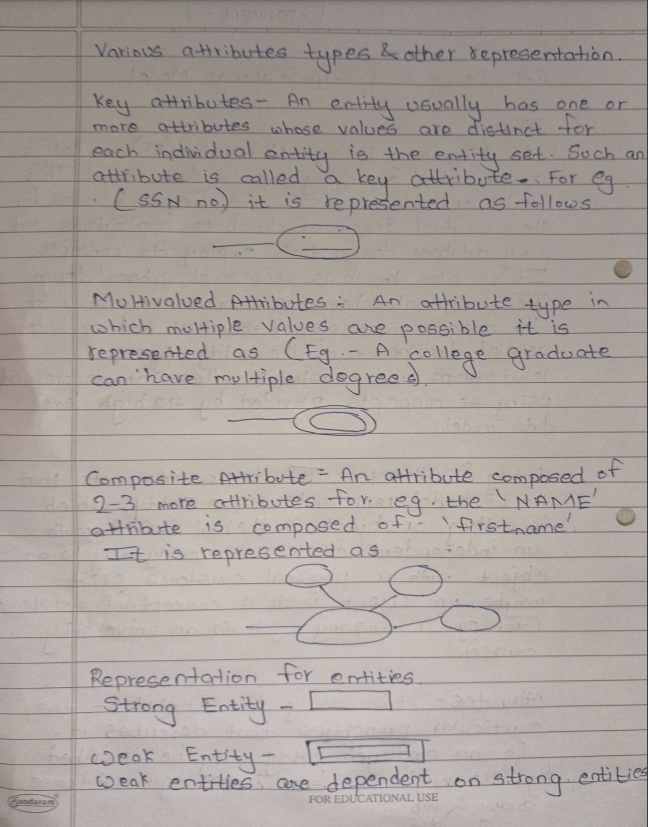 Various attributes types & other representation.
Key attributes - An entity usually has one or
more attributes whose values are distinct for
each individual entity is the entity set. Such an
attribute is called a key attribute. For eg.
(SSN no) it is represented as follows
Multivalued Attributes : An attribute type in
which multiple values are possible it is
represented as (Eg. - A college graduate
can have multiple degrees).
Composite Attribute = An attribute composed of
2-3 more attributes for. eg. the 'NAME'
attribute is composed of 'firstname'.
It is represented as
Representation for entities.
Strong Entity -
Weak Entity -
Weak entities are dependent on strong entities
Sundaram
FOR EDUCATIONAL USE